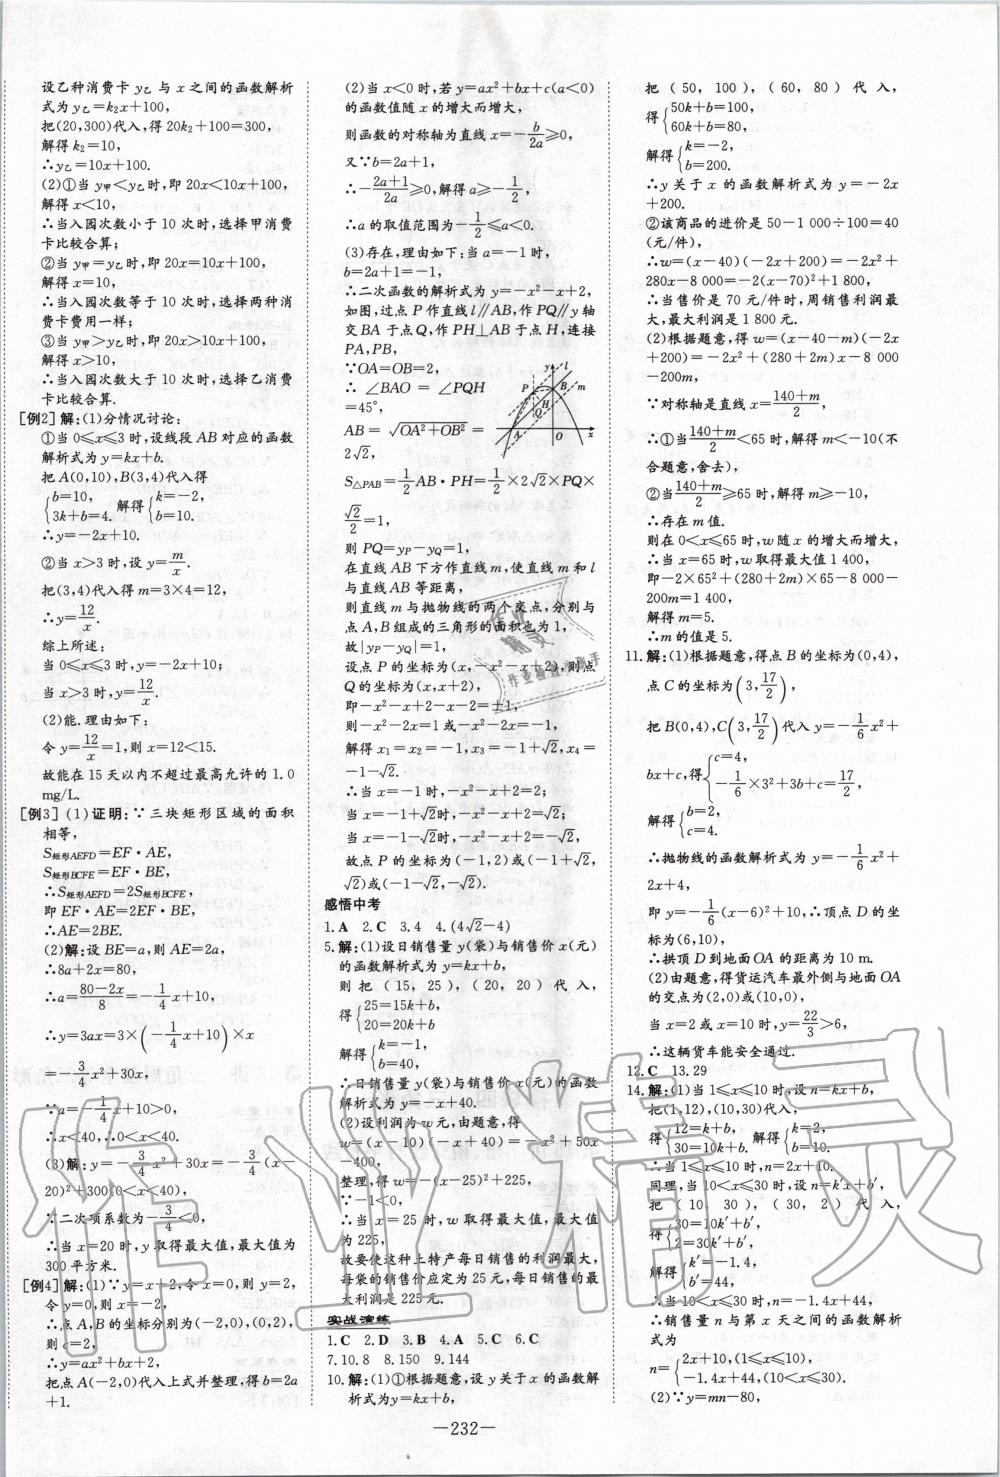 设乙种消费卡 y乙 与 x 之间的函数解析
式为 y乙=k₂x+100,
把(20,300)代入,得 20k₂+100=300,
解得 k₂=10,
∴y乙=10x+100.
(2)①当 y甲<y乙时,即 20x<10x+100,
解得 x<10,
∴当入园次数小于 10 次时,选择甲消费
卡比较合算;
②当 y甲=y乙时,即 20x=10x+100,
解得 x=10,
∴当入园次数等于 10 次时,选择两种消
费卡费用一样;
③当 y甲>y乙时,即 20x>10x+100,
解得 x>10,
∴当入园次数大于 10 次时,选择乙消费
卡比较合算.
[例2]解:(1)分情况讨论:
①当 0≤x≤3 时,设线段 AB 对应的函数
解析式为 y=kx+b.
把 A(0,10),B(3,4)代入得
{b=10, 3k+b=4. 解得{k=-2, b=10.
∴y=-2x+10.
②当 x>3 时,设 y=m/x.
把(3,4)代入得 m=3×4=12,
∴y=12/x.
综上所述:
当 0≤x≤3 时,y=-2x+10;
当 x>3 时,y=12/x.
(2)能.理由如下:
令 y=12/x=1,则 x=12<15.
故能在 15 天以内不超过最高允许的 1.0
mg/L.
[例3](1)证明:∵三块矩形区域的面积
相等,
S矩形AEFD=EF·AE,
S矩形BCFE=EF·BE,
∴S矩形AEFD=2S矩形BCFE,
即 EF·AE=2EF·BE,
∴AE=2BE.
(2)解:设 BE=a,则 AE=2a,
∴8a+2x=80,
∴a=(80-2x)/8=-1/4x+10,
∴y=3ax=3×(-1/4x+10)×x
=-3/4x²+30x,
∵a=-1/4x+10>0,
∴x<40,∴0<x<40.
(3)解:y=-3/4x²+30x=-3/4(x-
20)²+300(0<x<40),
∵二次项系数为-3/4<0,
∴当 x=20 时,y 取得最大值,最大值为
300 平方米.
[例4]解:(1)∵y=x+2,令 x=0,则 y=2,
令 y=0,则 x=-2,
∴点 A,B 的坐标分别为(-2,0),(0,2),
则 c=2,
∴y=ax²+bx+2,
把点 A(-2,0)代入上式并整理,得 b=2a
+1.
(2)当 x<0 时,若 y=ax²+bx+c(a<0)
的函数值随 x 的增大而增大,
则函数的对称轴为直线 x=-b/2a≥0,
又∵b=2a+1,
∴-(2a+1)/2a≥0,解得 a≥-1/2,
∴a 的取值范围为-1/2≤a<0.
(3)存在,理由如下:当 a=-1 时,
b=2a+1=-1,
∴二次函数的解析式为 y=-x²-x+2,
如图,过点 P 作直线 l∥AB,作 PQ∥y 轴
交 BA 于点 Q,作 PH⊥AB 于点 H,连接
PA,PB,
∵OA=OB=2,
∴∠BAO=∠PQH
=45°,
AB=√(OA²+OB²)=
2√2,
S△PAB=1/2AB·PH=1/2×2√2×PQ×
√2/2=1,
则 PQ=yP-yQ=1,
在直线 AB 下方作直线 m,使直线 m 和 l
与直线 AB 等距离,
则直线 m 与抛物线的两个交点,分别与
点 A,B 组成的三角形的面积也为 1,
故|yP-yQ|=1,
设点 P 的坐标为(x,-x²-x+2),则点
Q 的坐标为(x,x+2),
即-x²-x+2-x-2=±1,
则-x²-2x=1 或-x²-2x=-1,
解得 x₁=x₂=-1,x₃=-1+√2,x₄=
-1-√2.
∴当 x=-1 时,-x²-x+2=2;
当 x=-1+√2时,-x²-x+2=√2;
当 x=-1-√2时,-x²-x+2=-√2,
故点 P 的坐标为(-1,2)或(-1+√2,
√2)或(-1-√2,-√2).
感悟中考
1.A 2.C 3.4 4.(4√2-4)
5.解:(1)设日销售量 y(袋)与销售价 x(元)
的函数解析式为 y=kx+b,
则 把 (15, 25), (20, 20) 代 入,
得{25=15k+b, 20=20k+b
解得{k=-1, b=40.
∴日销售量 y(袋)与销售价 x(元)的函数
解析式为 y=-x+40.
(2)设利润为 w元,由题意,得
w=(x-10)(-x+40)=-x²+50x
-400,
整理,得 w=-(x-25)²+225,
∵-1<0,
∴当 x=25 时,w 取得最大值,最大值
为 225,
故要使这种土特产每日销售的利润最大,
每袋的销售价应定为 25 元,每日销售的最
大利润是 225元.
实战演练
1.C 2.D 3.B 4.A 5.C 6.C
7.10.8 8.150 9.144
10.解:(1)①根据题意,设 y 关于 x 的函数解
析式为 y=kx+b,
把 (50, 100), (60, 80) 代 入,
得{50k+b=100, 60k+b=80,
解得{k=-2, b=200.
∴y 关于 x 的函数解析式为 y=-2x
+200.
②该商品的进价是 50-1 000÷100=40
(元/件),
∴w=(x-40)(-2x+200)=-2x²+
280x-8 000=-2(x-70)²+1 800,
∴当售价是 70 元/件时,周销售利润最
大,最大利润是 1 800 元.
(2)根据题意,得 w=(x-40-m)(-2x
+200)=-2x²+(280+2m)x-8 000
-200m,
∵对称轴是直线 x=(140+m)/2,
∴①当(140+m)/2<65 时,解得 m<-10(不
合题意,舍去),
②当(140+m)/2≥65 时,解得 m≥-10,
∴存在 m 值.
则在 0<x≤65 时,w随 x 的增大而增大,
∴当 x=65 时,w取得最大值 1 400,
即-2×65²+(280+2m)×65-8 000-
200m=1 400,
解得 m=5.
∴m 的值是 5.
11.解:(1)根据题意,得点 B 的坐标为(0,4),
点 C 的坐标为(3,17/2),
把 B(0,4),C(3,17/2)代入 y=-1/6x²+
bx+c,得{c=4, -1/6×3²+3b+c=17/2,
解得{b=2, c=4.
∴抛物线的函数解析式为 y=-1/6x²+
2x+4,
即 y=-1/6(x-6)²+10,∴顶点 D 的坐
标为(6,10),
∴拱顶 D 到地面 OA 的距离为 10 m.
(2)由题意,得货运汽车最外侧与地面 OA
的交点为(2,0)或(10,0),
当 x=2 或 x=10 时,y=22/3>6,
∴这辆货车能安全通过.
12.C 13.29
14.解:(1)当 1≤x≤10 时,设 n=kx+b,
把(1,12),(10,30)代入,
得{12=k+b, 30=10k+b, 解得{k=2, b=10.
∴当 1≤x≤10 时,n=2x+10.
同理,当 10<x≤30 时,设 n=k'x+b',
把 (10, 30), (30, 2) 代 入,
得{30=10k'+b', 2=30k'+b',
解得{k'=-1.4, b'=44,
∴当 10<x≤30 时,n=-1.4x+44,
∴销售量 n 与第 x 天之间的函数解析
式为
n={2x+10,(1≤x≤10), -1.4x+44,(10<x≤30).
(2)∵y=mn-80,
—232—
作业精灵